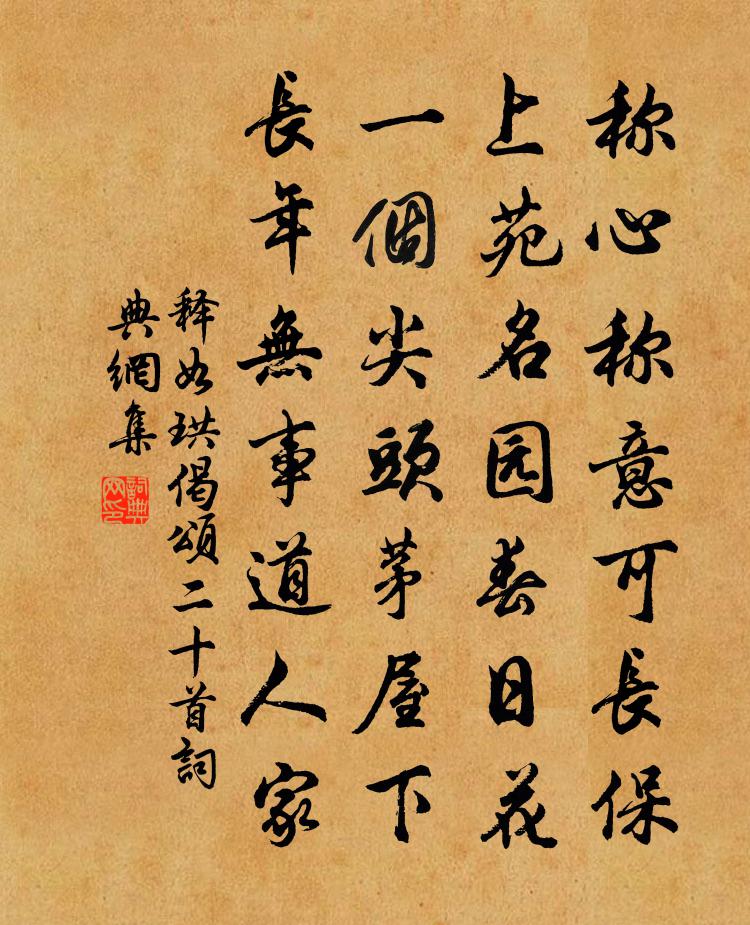 称心称意可長保
上苑名园春日花
一個尖頭茅屋下
長年無事道人家
释如珙偈頌二十首詞
典網集
詞典
网印